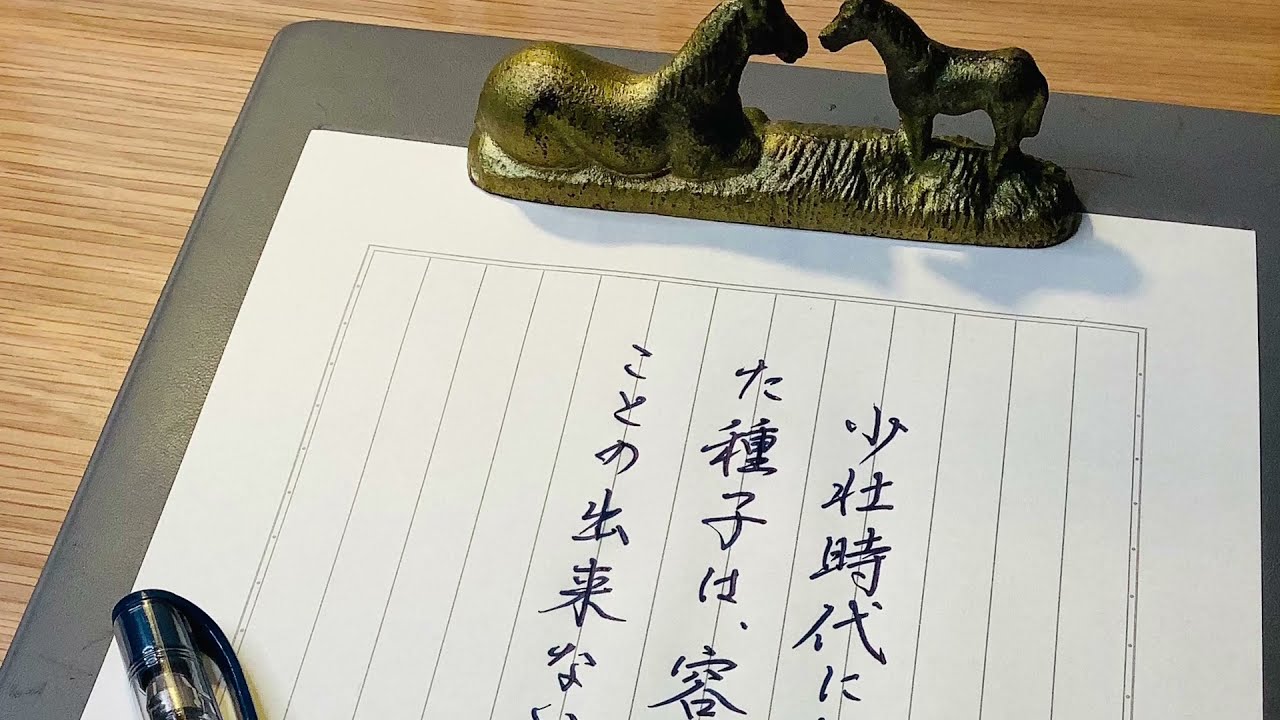 少壮時代に
た種子は、容
ことの出来ない